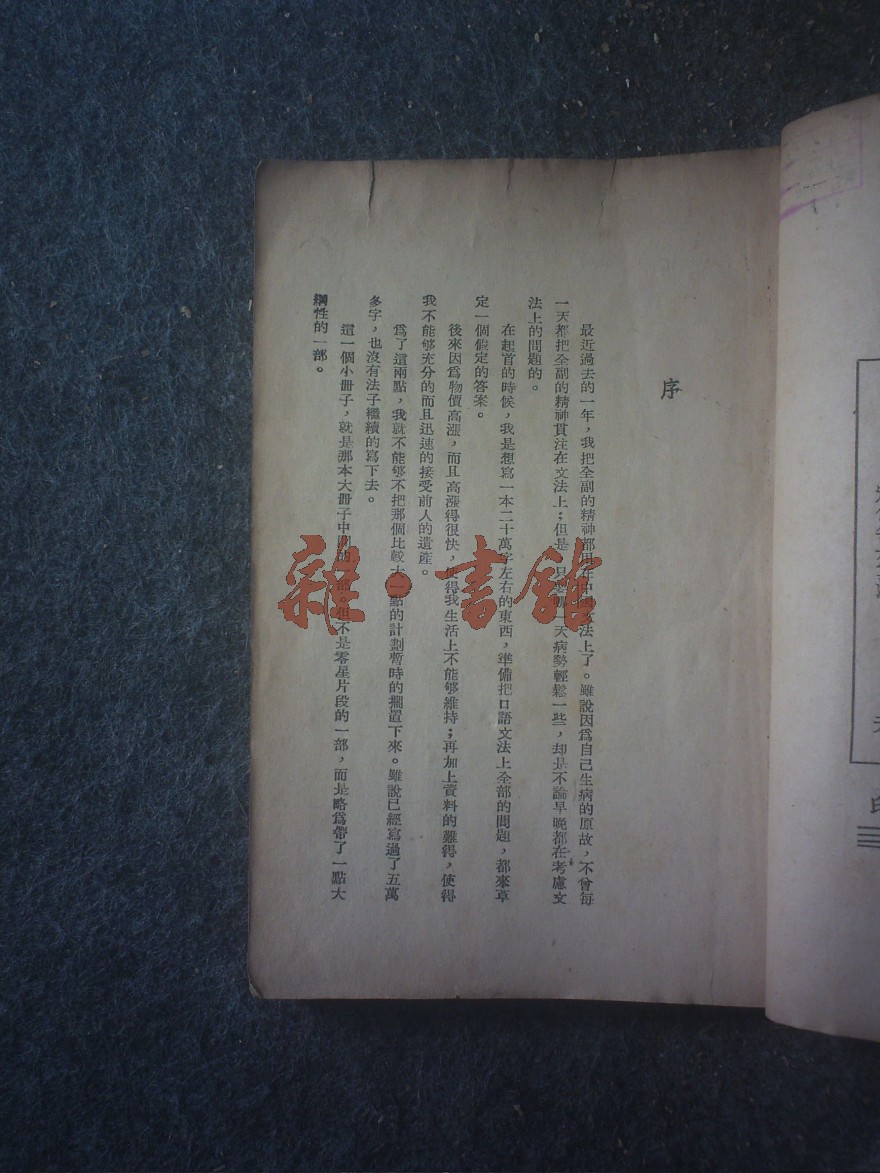 序
最近過去的一年，我把全副的精神都用在中國文法上了。雖說因爲自己生病的原故，不曾每
一天都把全副的精神貫注在文法上；但是，只要一天病勢輕鬆一些，却是不論早晚都在考慮文
法上的問題的。
在起首的時候，我是想寫一本二十萬字左右的東西，準備把口語文法上全部的問題，都來草
定一個假定的答案。
後來因爲物價高漲，而且高漲得很快，使得我生活上不能够維持；再加上資料的難得，使得
我不能够充分的而且迅速的接受前人的遺產。
爲了這兩點，我就不能够不把那個比較大一點的計劃暫時的擱置下來。雖說已經寫過了五萬
多字，也沒有法子繼續的寫下去。
這一個小冊子，就是那本大冊子中間的一部。但不是零星片段的一部，而是略爲帶了一點大
綱性的一部。
雜·書館